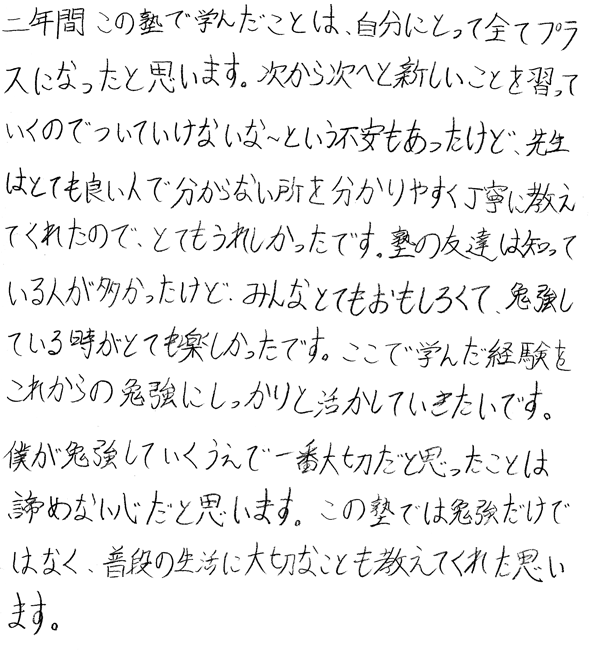 二年間この塾で学んだことは、自分にとって全てプラ
スになったと思います。次から次へと新しいことを習って
いくのでついていけないな~という不安もあったけど、先生
はとても良い人で分からない所を分かりやすく丁寧に教え
てくれたので、とてもうれしかったです。塾の友達は知って
いる人が多かったけど、みんなとてもおもしろくて、勉強し
ている時がとても楽しかったです。ここで学んだ経験を
これからの勉強にしっかりと活かしていきたいです。
僕が勉強していくうえで一番大切だと思ったことは
諦めない心だと思います。この塾では勉強だけで
はなく、普段の生活に大切なことも教えてくれた思い
ます。